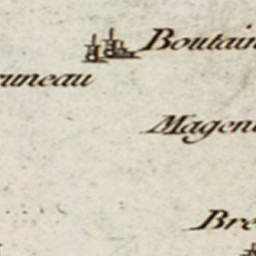 Boutain
runeau
Magen
Bre